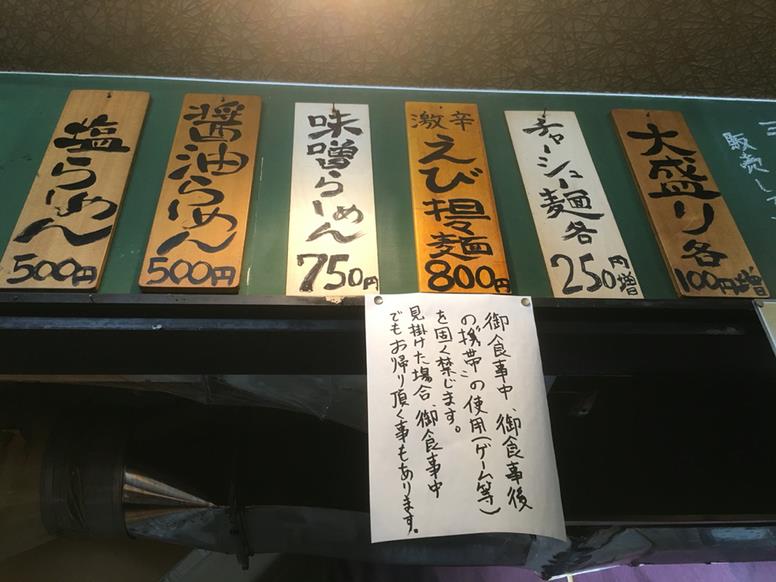 塩らーめん
500円
醤油らーめん
500円
味噌らーめん
750円
激辛
えび担々麺
800円
チャーシュー麺各
250円増
大盛り各
100円増
販売し
御食事中、御食事後
の携帯の使用(ゲーム等)
を固く禁じます。
見掛けた場合、御食事中
でもお帰り頂く事もあります。